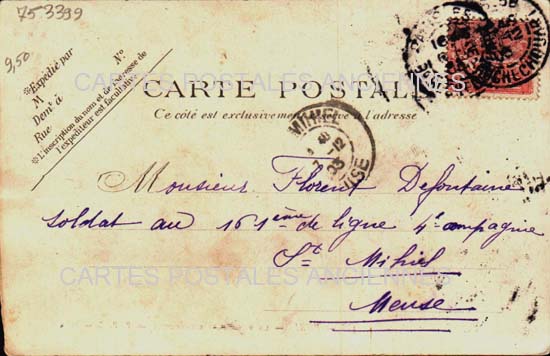 753399
9,50
Expédié par
M
Demt à
Rue
No
L'inscription du nom et de l'adresse de
l'expéditeur est facultative.
CARTE POSTALE
Ce côté est exclusivement réservé à l'adresse
MIHIEL
12
03
MEUSE
Monsieur Florent Defontaine
soldat au 161ème de ligne 4e compagnie
St Mihiel
Meuse
CARTES POSTALES ANCIENNES
CARTES POSTALES ANCIENNES